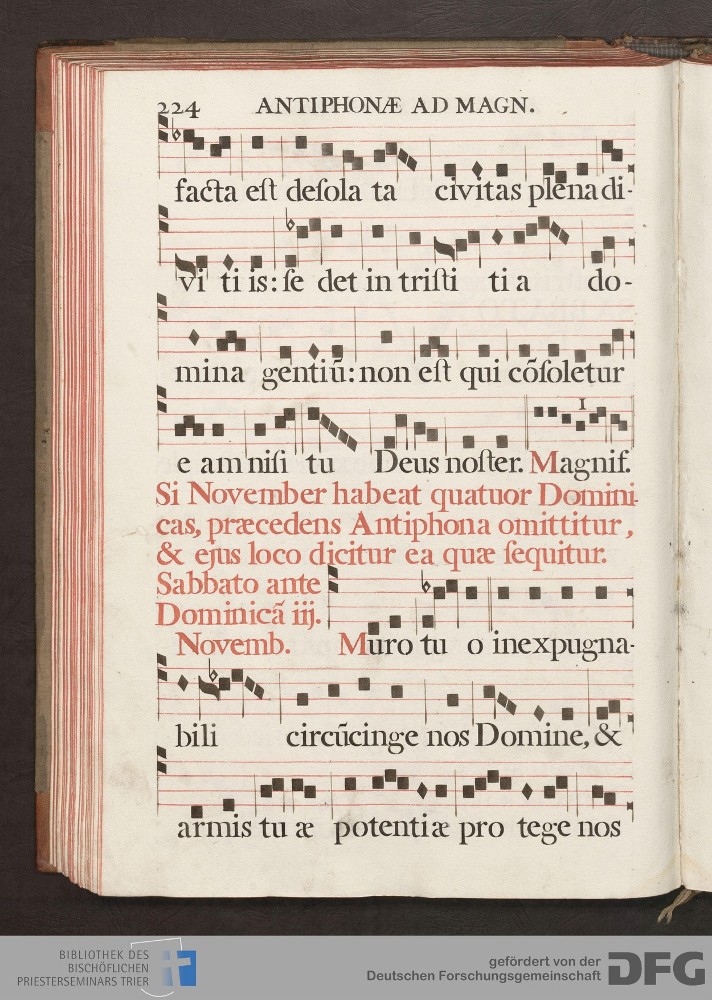 224 ANTIPHONÆ AD MAGN.
facta eſt deſola ta civitas plena di-
vi ti is: ſe det in triſti ti a do-
mina gentiū: non eſt qui cõſoletur
1
e am niſi tu Deus noſter. Magnif.
Si November habeat quatuor Domini-
cas, præcedens Antiphona omittitur,
& ejus loco dicitur ea quæ ſequitur.
Sabbato ante
Dominicã iij.
Novemb. Muro tu o inexpugna-
bili circũcinge nos Domine, &
armis tu æ potentiæ pro tege nos
BIBLIOTHEK DES
BISCHÖFLICHEN
PRIESTERSEMINARS TRIER
gefördert von der
Deutschen Forschungsgemeinschaft DFG